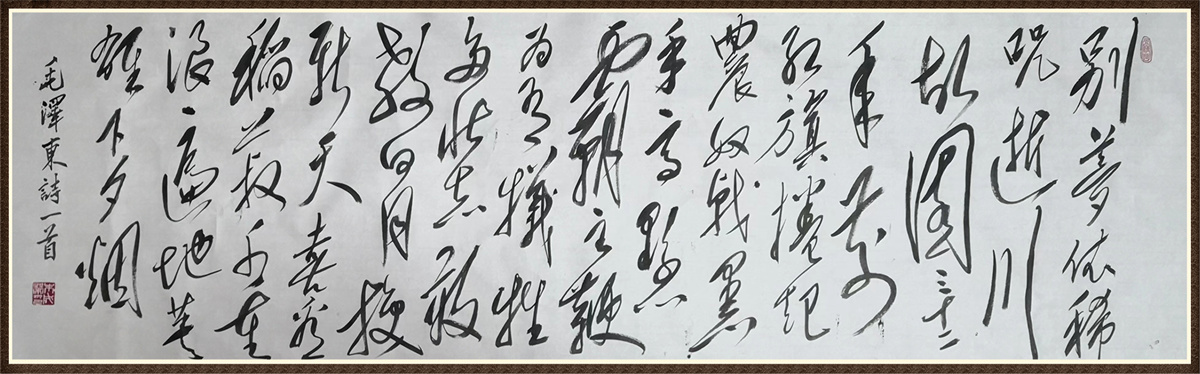 别夢依稀
咒逝川
故園三十二
年前
红旗捲起
農奴戟黑
手高懸
霸主鞭
为有犧牲
多壮志敢
教日月換
新天喜看
稻菽千重
浪遍地英
雄下夕烟
毛澤東詩一首